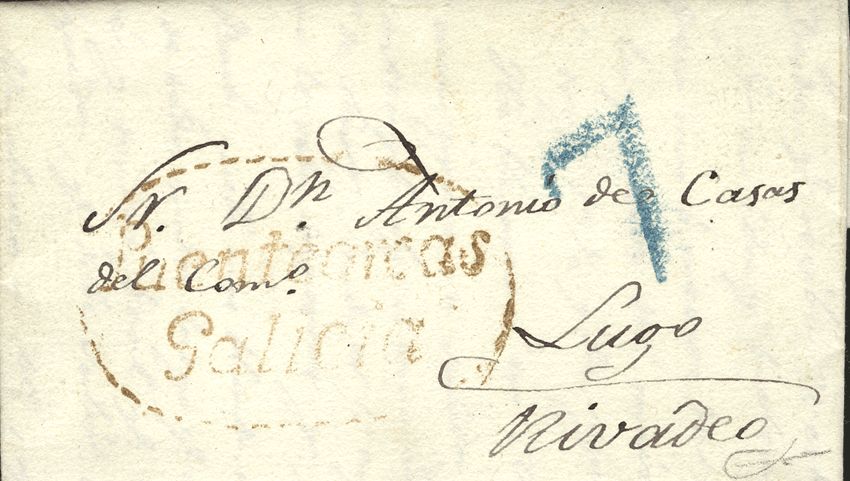 7
Sr. Dn. Antonio de Casas
Puenteáreas
del Como.
Galicia
Lugo
Rivadeo